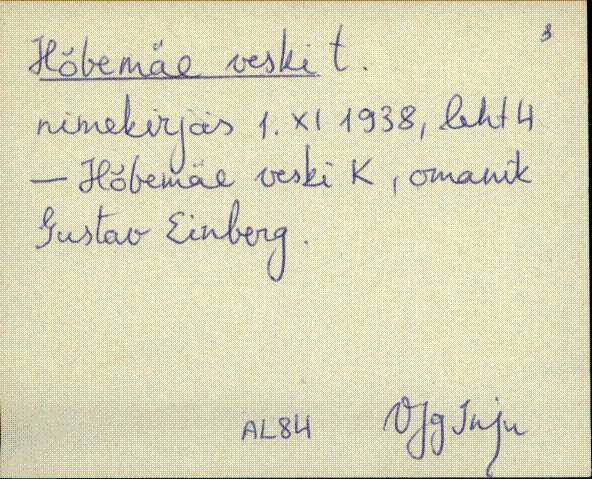 3
Hõbemäe veski t.
nimekirjas 1. XI 1938, leht 4
— Hõbemäe veski K, omanik
Gustav Einberg.
AL84
VJg Inju